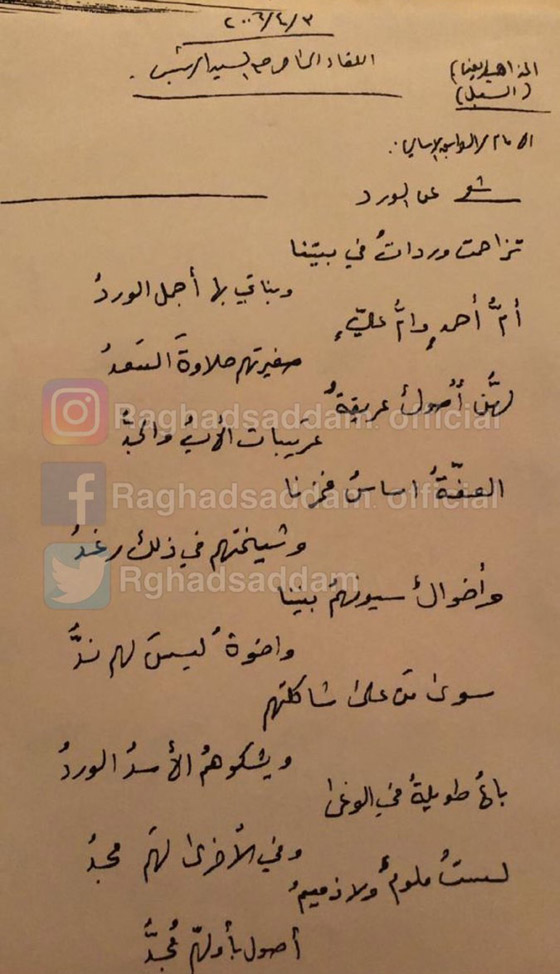 ٢٠٠٦/٤/٣
اللقاء الخاص مع السيد الرئيس.
(السبل)
شعر عن الورد
تزاحمت وردات في بيتنا
وبناتي بها أجمل الوردُ
أمُّ أحمدٍ وامُّ عليٍّ
صغيرتهم حلاوةَ السعدُ
لهنَّ أصولٌ عريقةٌ
عربيات الأبُ والجدُّ
العفّةُ اساسُ فخرنا
وشيختهم في ذلك رغدُ
وأخوالٌ سيوفهمُ بيننا
واخوةٌ ليسَ لهم ندُّ
سوى مَن على شاكلتهم
ويشكوهمُ الأسدُ الوردُ
باعٌ طويلةٌ في الوغى
وفي الأخرى لهم مجدُ
لستُ ملومٌ ولا ذميمُ
أصول بأولهم مُجدُّ
Raghadsaddam official
Raghadsaddam official
Rghadsaddam